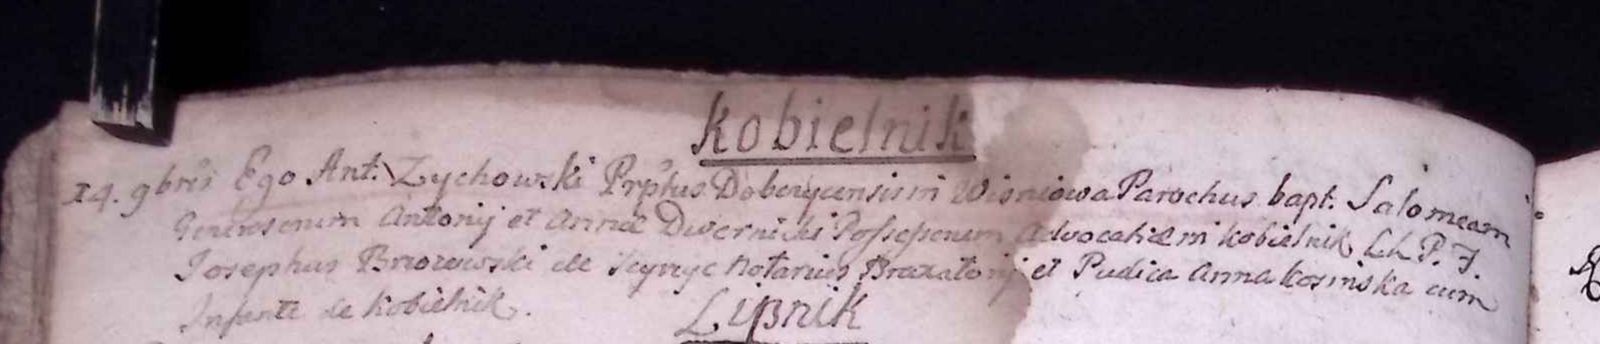 Kobielnik
14. 9bris Ego Ant. Zychowski Prphus Dobczycensis in Wisniowa Parochus bapt. Salomeam
Generosorum Antonij et Annæ Dwernicki Possessorum Advocatiæ in Kobielnik LL P. F.
Josephus Brzozowski de notarius Braxatorij et Pudica Anna Kosinska cum
Infante de Kobielnik.
Lipnik